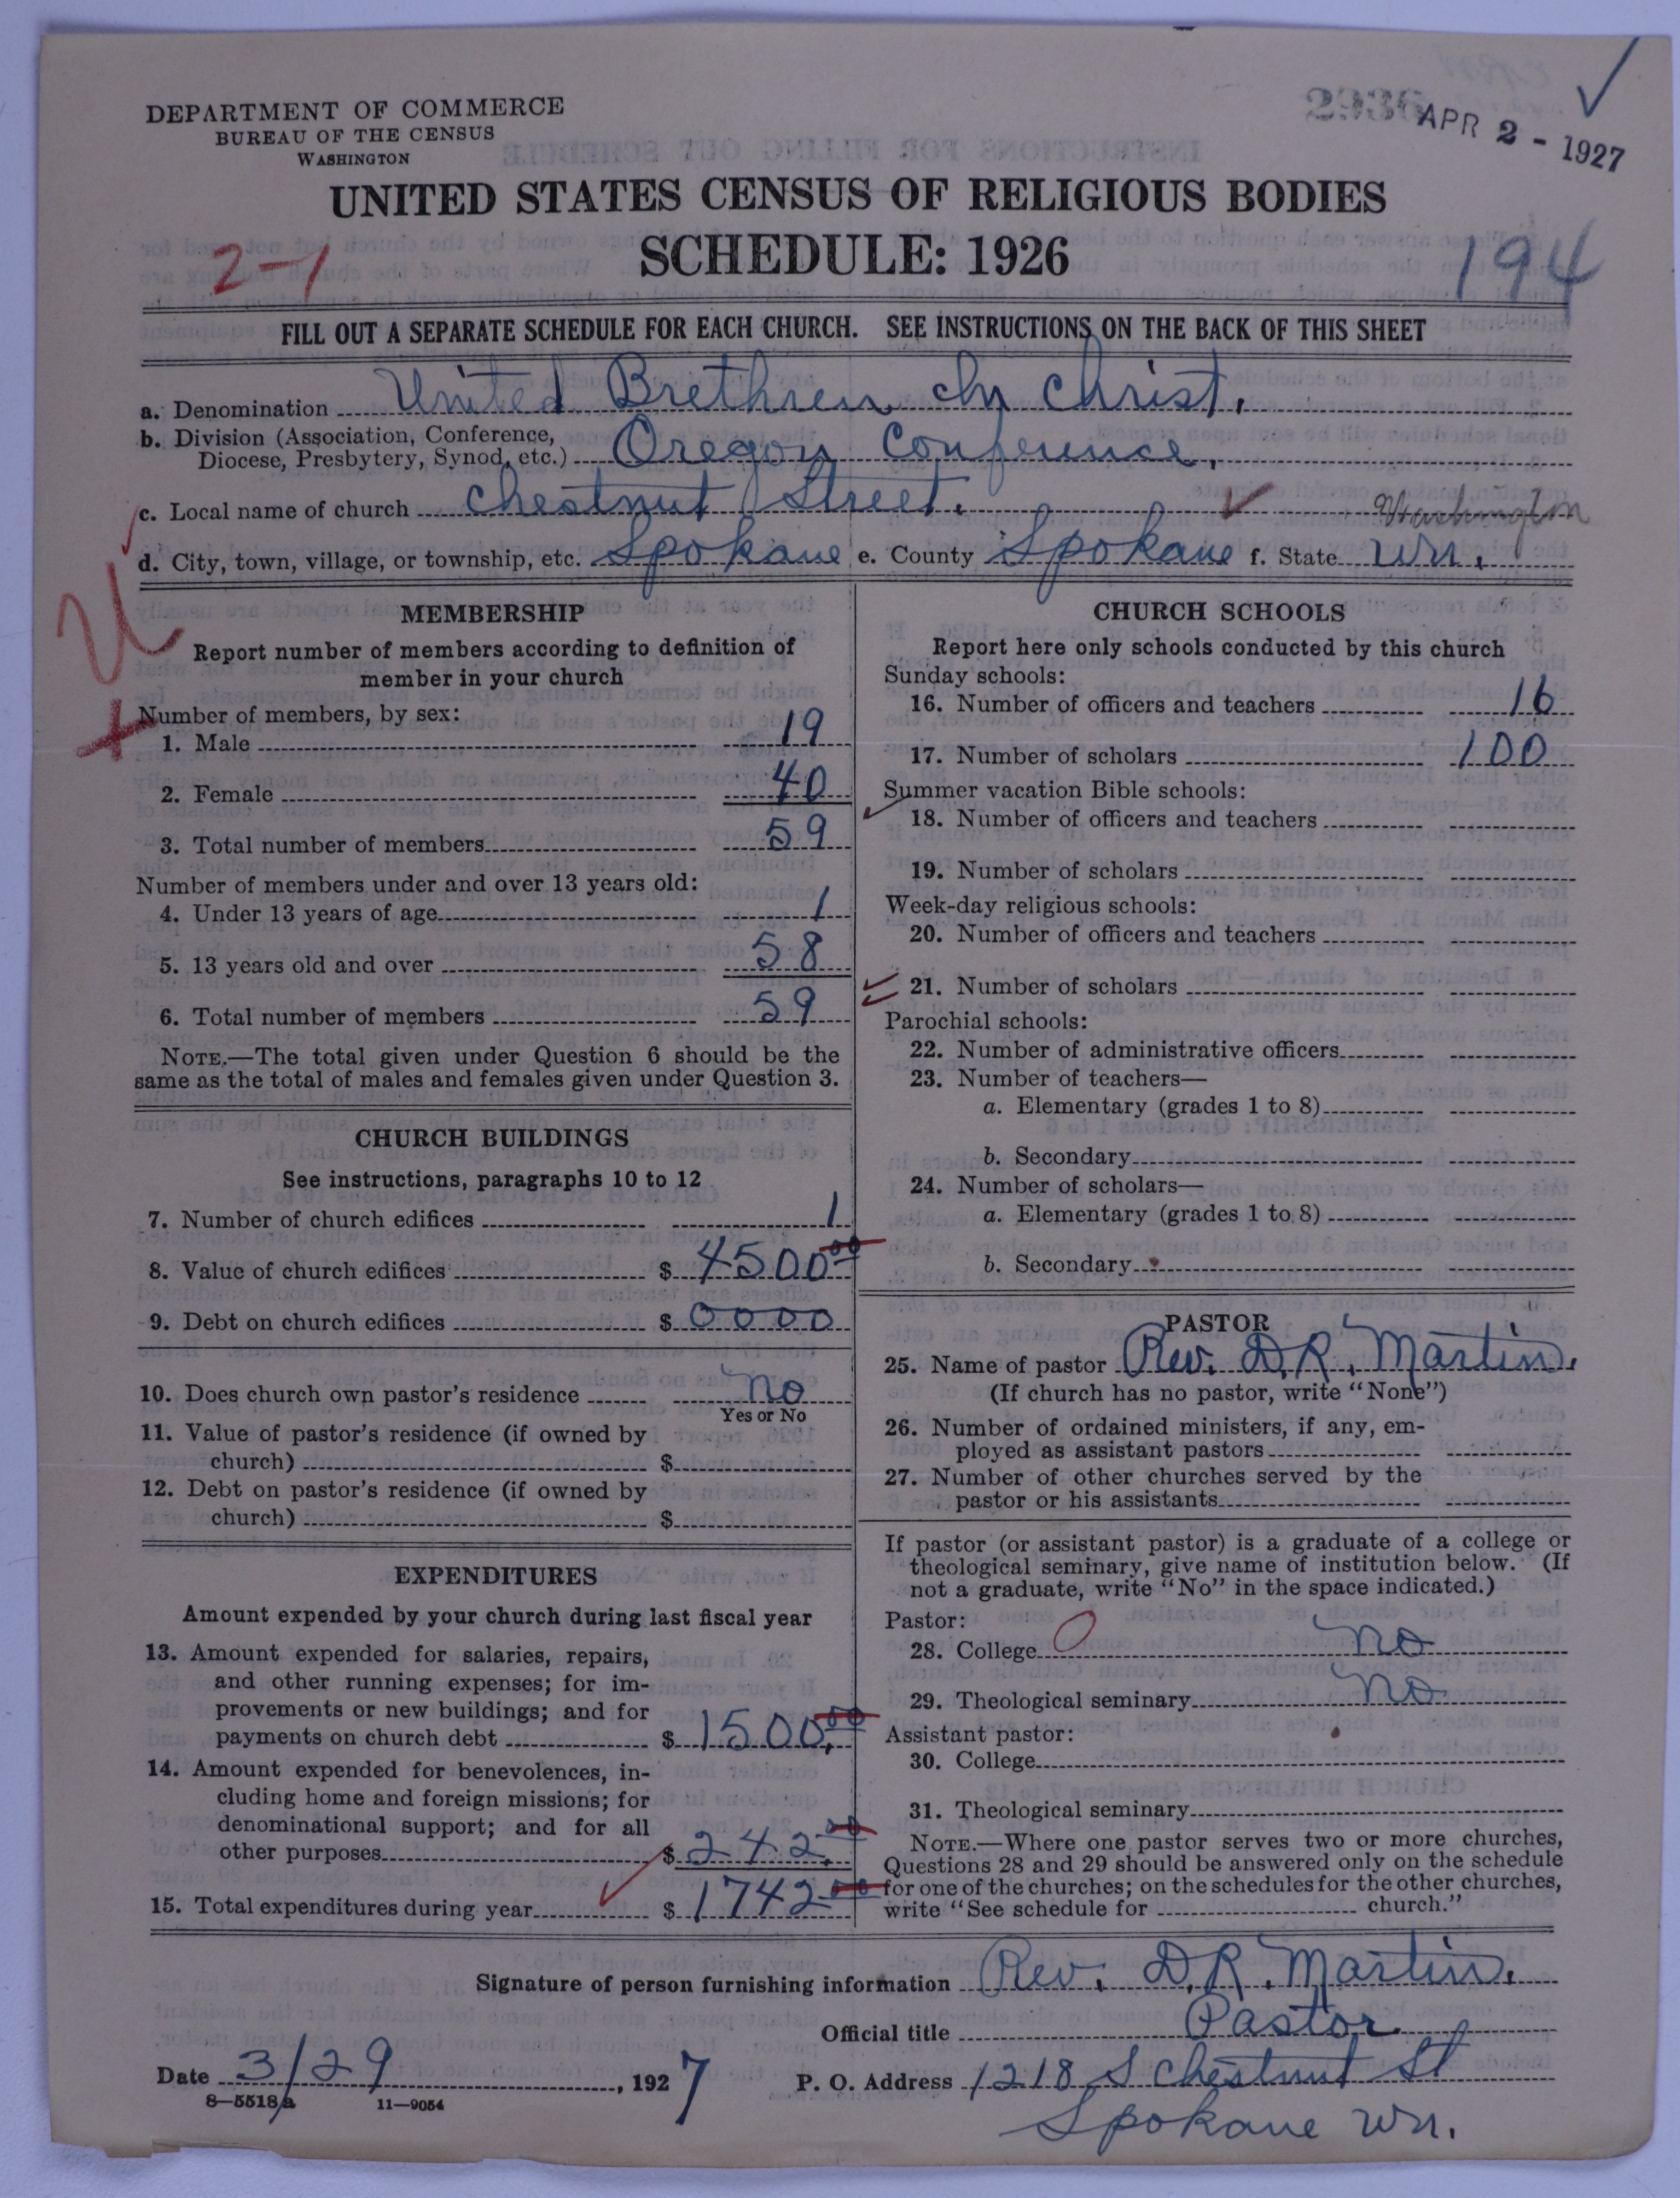 DEPARTMENT OF COMMERCE
BUREAU OF THE CENSUS
WASHINGTON
2936
APR 2 - 1927
UNITED STATES CENSUS OF RELIGIOUS BODIES
SCHEDULE: 1926
2-1
194
FILL OUT A SEPARATE SCHEDULE FOR EACH CHURCH. SEE INSTRUCTIONS ON THE BACK OF THIS SHEET
a. Denomination United Brethren In Christ.
b. Division (Association, Conference,
Diocese, Presbytery, Synod, etc.) Oregon Conference.
c. Local name of church Chestnut Street. Washington
d. City, town, village, or township, etc. Spokane e. County Spokane f. State Wn.
MEMBERSHIP
Report number of members according to definition of
member in your church
Number of members, by sex:
1. Male 19
2. Female 40
3. Total number of members 59
Number of members under and over 13 years old:
4. Under 13 years of age 1
5. 13 years old and over 58
6. Total number of members 59
NOTE.—The total given under Question 6 should be the
same as the total of males and females given under Question 3.
CHURCH BUILDINGS
See instructions, paragraphs 10 to 12
7. Number of church edifices 1
8. Value of church edifices $ 4500.00
9. Debt on church edifices $ 0000
10. Does church own pastor's residence no
Yes or No
11. Value of pastor's residence (if owned by
church) $
12. Debt on pastor's residence (if owned by
church) $
EXPENDITURES
Amount expended by your church during last fiscal year
13. Amount expended for salaries, repairs,
and other running expenses; for im-
provements or new buildings; and for
payments on church debt $ 1500.00
14. Amount expended for benevolences, in-
cluding home and foreign missions; for
denominational support; and for all
other purposes $ 242.00
15. Total expenditures during year $ 1742.00
CHURCH SCHOOLS
Report here only schools conducted by this church
Sunday schools:
16. Number of officers and teachers 16
17. Number of scholars 100
Summer vacation Bible schools:
18. Number of officers and teachers
19. Number of scholars
Week-day religious schools:
20. Number of officers and teachers
21. Number of scholars
Parochial schools:
22. Number of administrative officers
23. Number of teachers—
a. Elementary (grades 1 to 8)
b. Secondary
24. Number of scholars—
a. Elementary (grades 1 to 8)
b. Secondary
PASTOR
25. Name of pastor Rev. D.R. Martin.
(If church has no pastor, write "None")
26. Number of ordained ministers, if any, em-
ployed as assistant pastors
27. Number of other churches served by the
pastor or his assistants
If pastor (or assistant pastor) is a graduate of a college or
theological seminary, give name of institution below. (If
not a graduate, write "No" in the space indicated.)
Pastor:
28. College no
29. Theological seminary no
Assistant pastor:
30. College
31. Theological seminary
NOTE.—Where one pastor serves two or more churches,
Questions 28 and 29 should be answered only on the schedule
for one of the churches; on the schedules for the other churches,
write "See schedule for church."
Signature of person furnishing information Rev. D.R. Martin.
Official title Pastor
Date 3/29, 1927 P. O. Address 1218 S Chestnut St
8—5518a 11—9054
Spokane Wn.